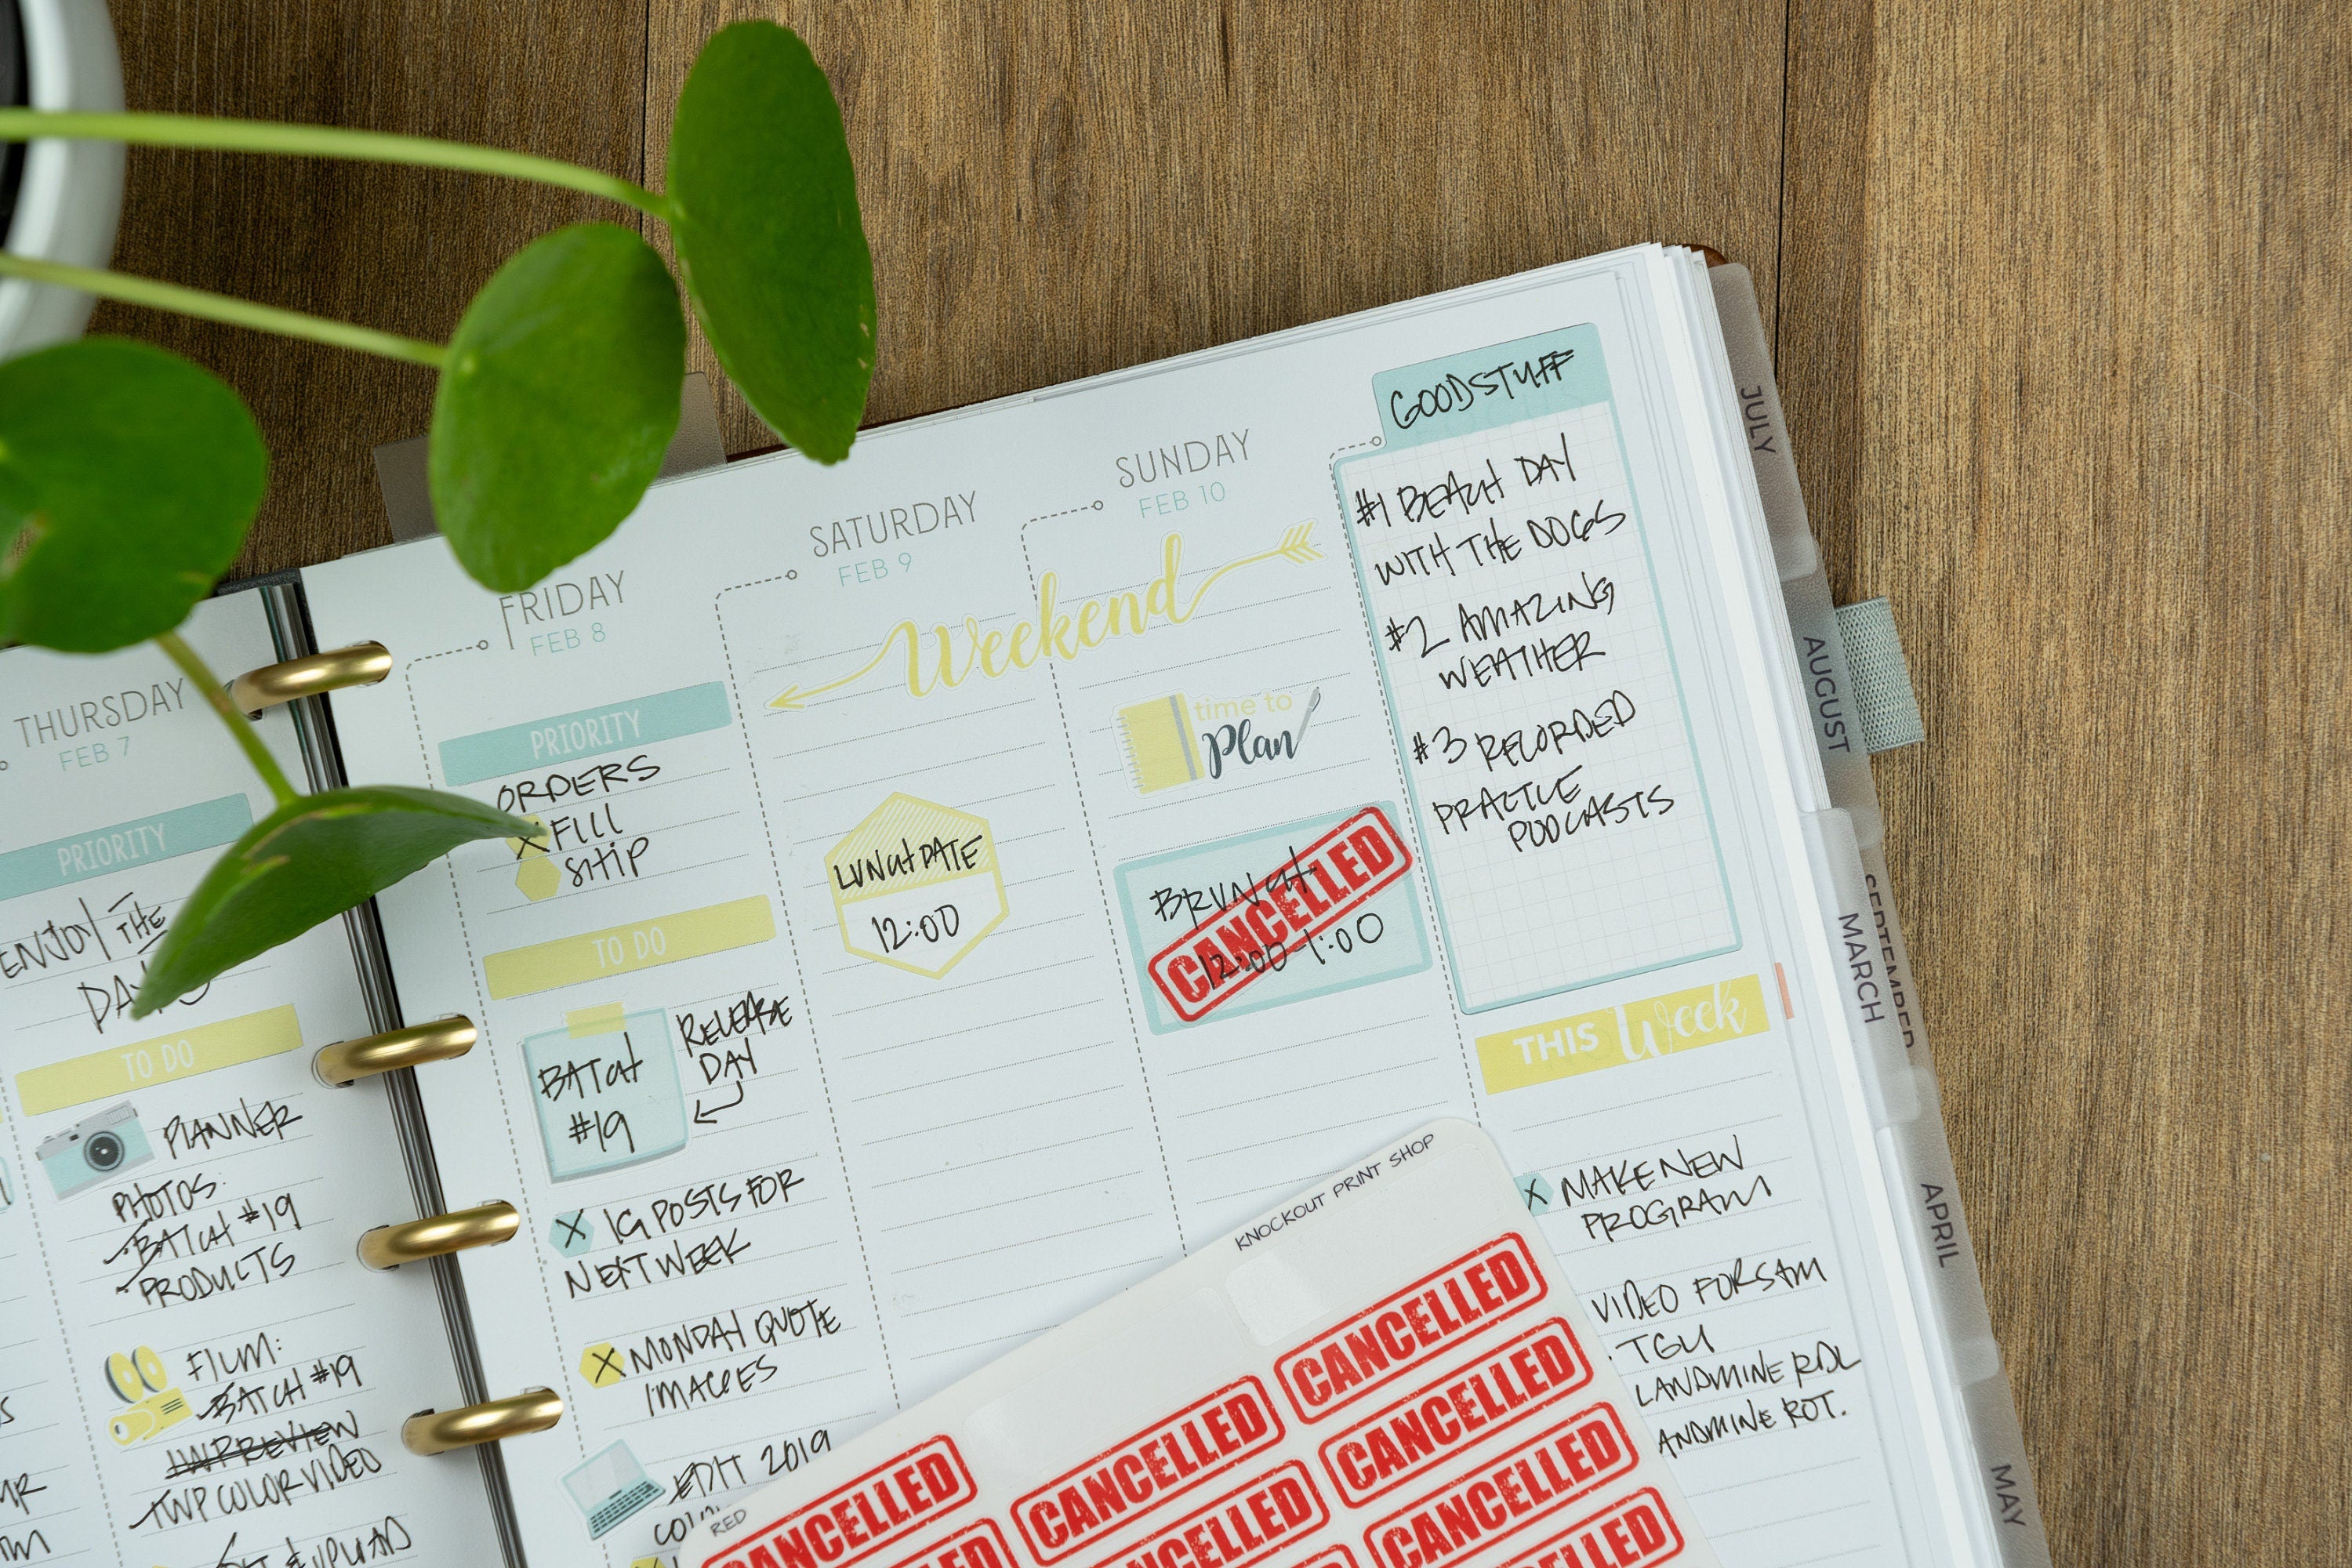 THURSDAY
FEB 7
PRIORITY
ENJOY THE
TO DO
PLANNER
PHOTOS:
BATCH #19
PRODUCTS
FILM:
BATCH #19
TWP COLOR VIDEO
FRIDAY
FEB 8
PRIORITY
ORDERS
X FILL
SHIP
TO DO
BATCH
#19
RELEASE
DAY
X IG POSTS FOR
NEXT WEEK
X MONDAY QUOTE
IMAGES
EDIT 2019
SATURDAY
FEB 9
Weekend
LUNCH DATE
12:00
SUNDAY
FEB 10
time to
Plan
BRUNCH
CANCELLED
12:00-1:00
GOOD STUFF
#1 BEACH DAY
WITH THE DOGS
#2 AMAZING
WEATHER
#3 RECORDED
PRACTICE
PODCASTS
THIS Week
X MAKE NEW
PROGRAM
VIDEO FOR SAM
. TGU
LANDMINE RDL
ANDMINE ROT.
KNOCKOUT PRINT SHOP
RED
CANCELLED
CANCELLED
CANCELLED
CANCELLED
CANCELLED
CANCELLED
JULY
AUGUST
SEPTEMBER
MARCH
APRIL
MAY